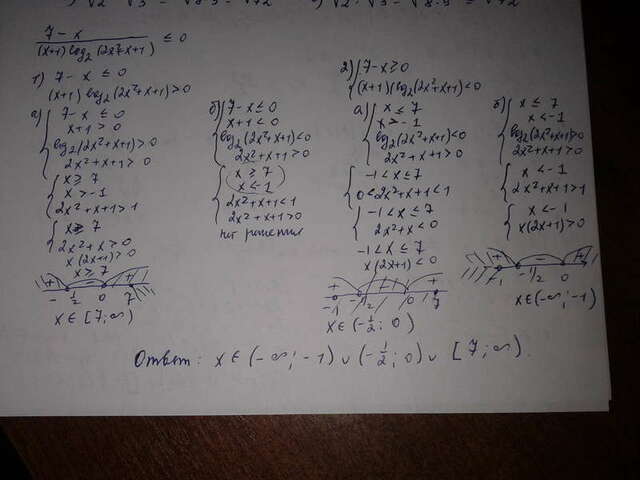 (7-x)/((x+1) log₂(2x²+x+1)) ≤ 0
1) 7-x ≤ 0
(x+1) log₂(2x²+x+1) > 0
а) { 7-x ≤ 0
x+1 > 0
log₂(2x²+x+1) > 0
2x²+x+1 > 0
{ x ≥ 7
x > -1
2x²+x+1 > 1
{ x ≥ 7
2x²+x > 0
x(2x+1) > 0
x ≥ 7
+ - +
-1/2 0 7
x ∈ [7; ∞)
б) { 7-x ≤ 0
x+1 < 0
log₂(2x²+x+1) < 0
2x²+x+1 > 0
{ x ≥ 7
x < -1
2x²+x+1 < 1
2x²+x+1 > 0
нет решения
2) { 7-x ≥ 0
(x+1) log₂(2x²+x+1) < 0
а) { x ≤ 7
x > -1
log₂(2x²+x+1) < 0
2x²+x+1 > 0
{ -1 < x ≤ 7
0 < 2x²+x+1 < 1
{ -1 < x ≤ 7
2x²+x < 0
{ -1 < x ≤ 7
x(2x+1) < 0
+ - +
-1 -1/2 0 7
x ∈ (-1/2; 0)
б) { x ≤ 7
x < -1
log₂(2x²+x+1) > 0
2x²+x+1 > 0
{ x < -1
2x²+x+1 > 1
{ x < -1
x(2x+1) > 0
+ - +
-1 -1/2 0
x ∈ (-∞; -1)
Ответ: x ∈ (-∞; -1) ∪ (-1/2; 0) ∪ [7; ∞).